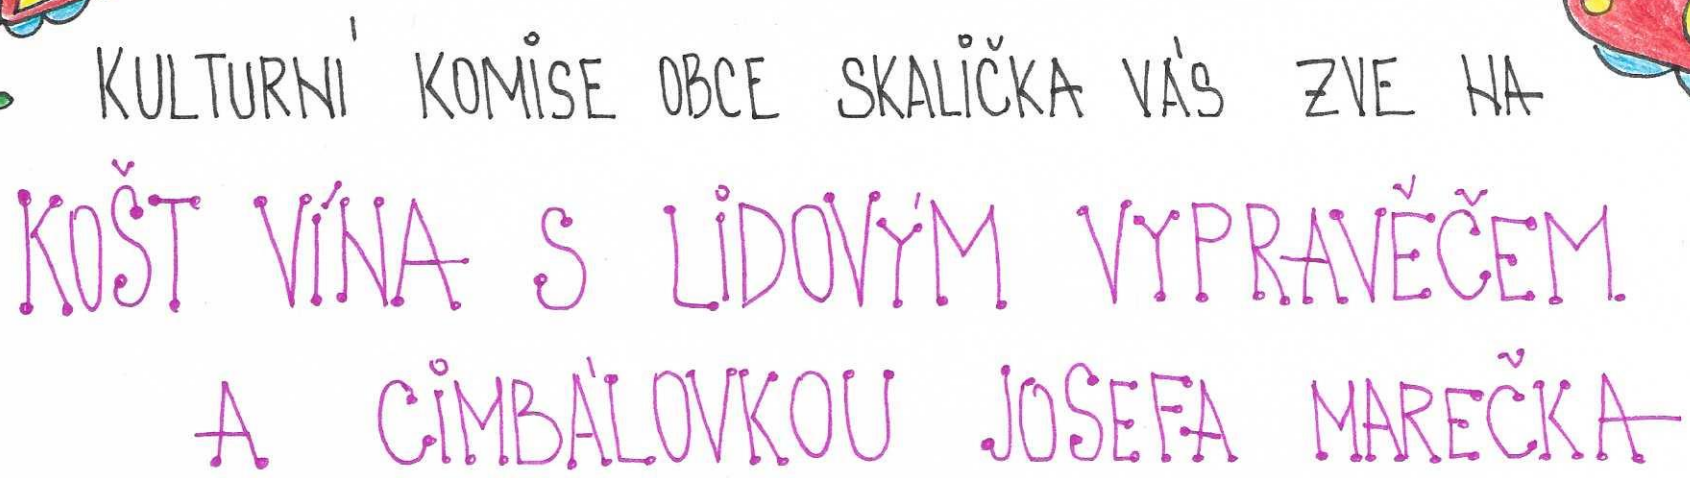 KULTURNÍ KOMISE OBCE SKALIČKA VÁS ZVE NA
KOŠT VÍNA S LIDOVÝM VYPRAVĚČEM
A CIMBÁLOVKOU JOSEFA MAREČKA